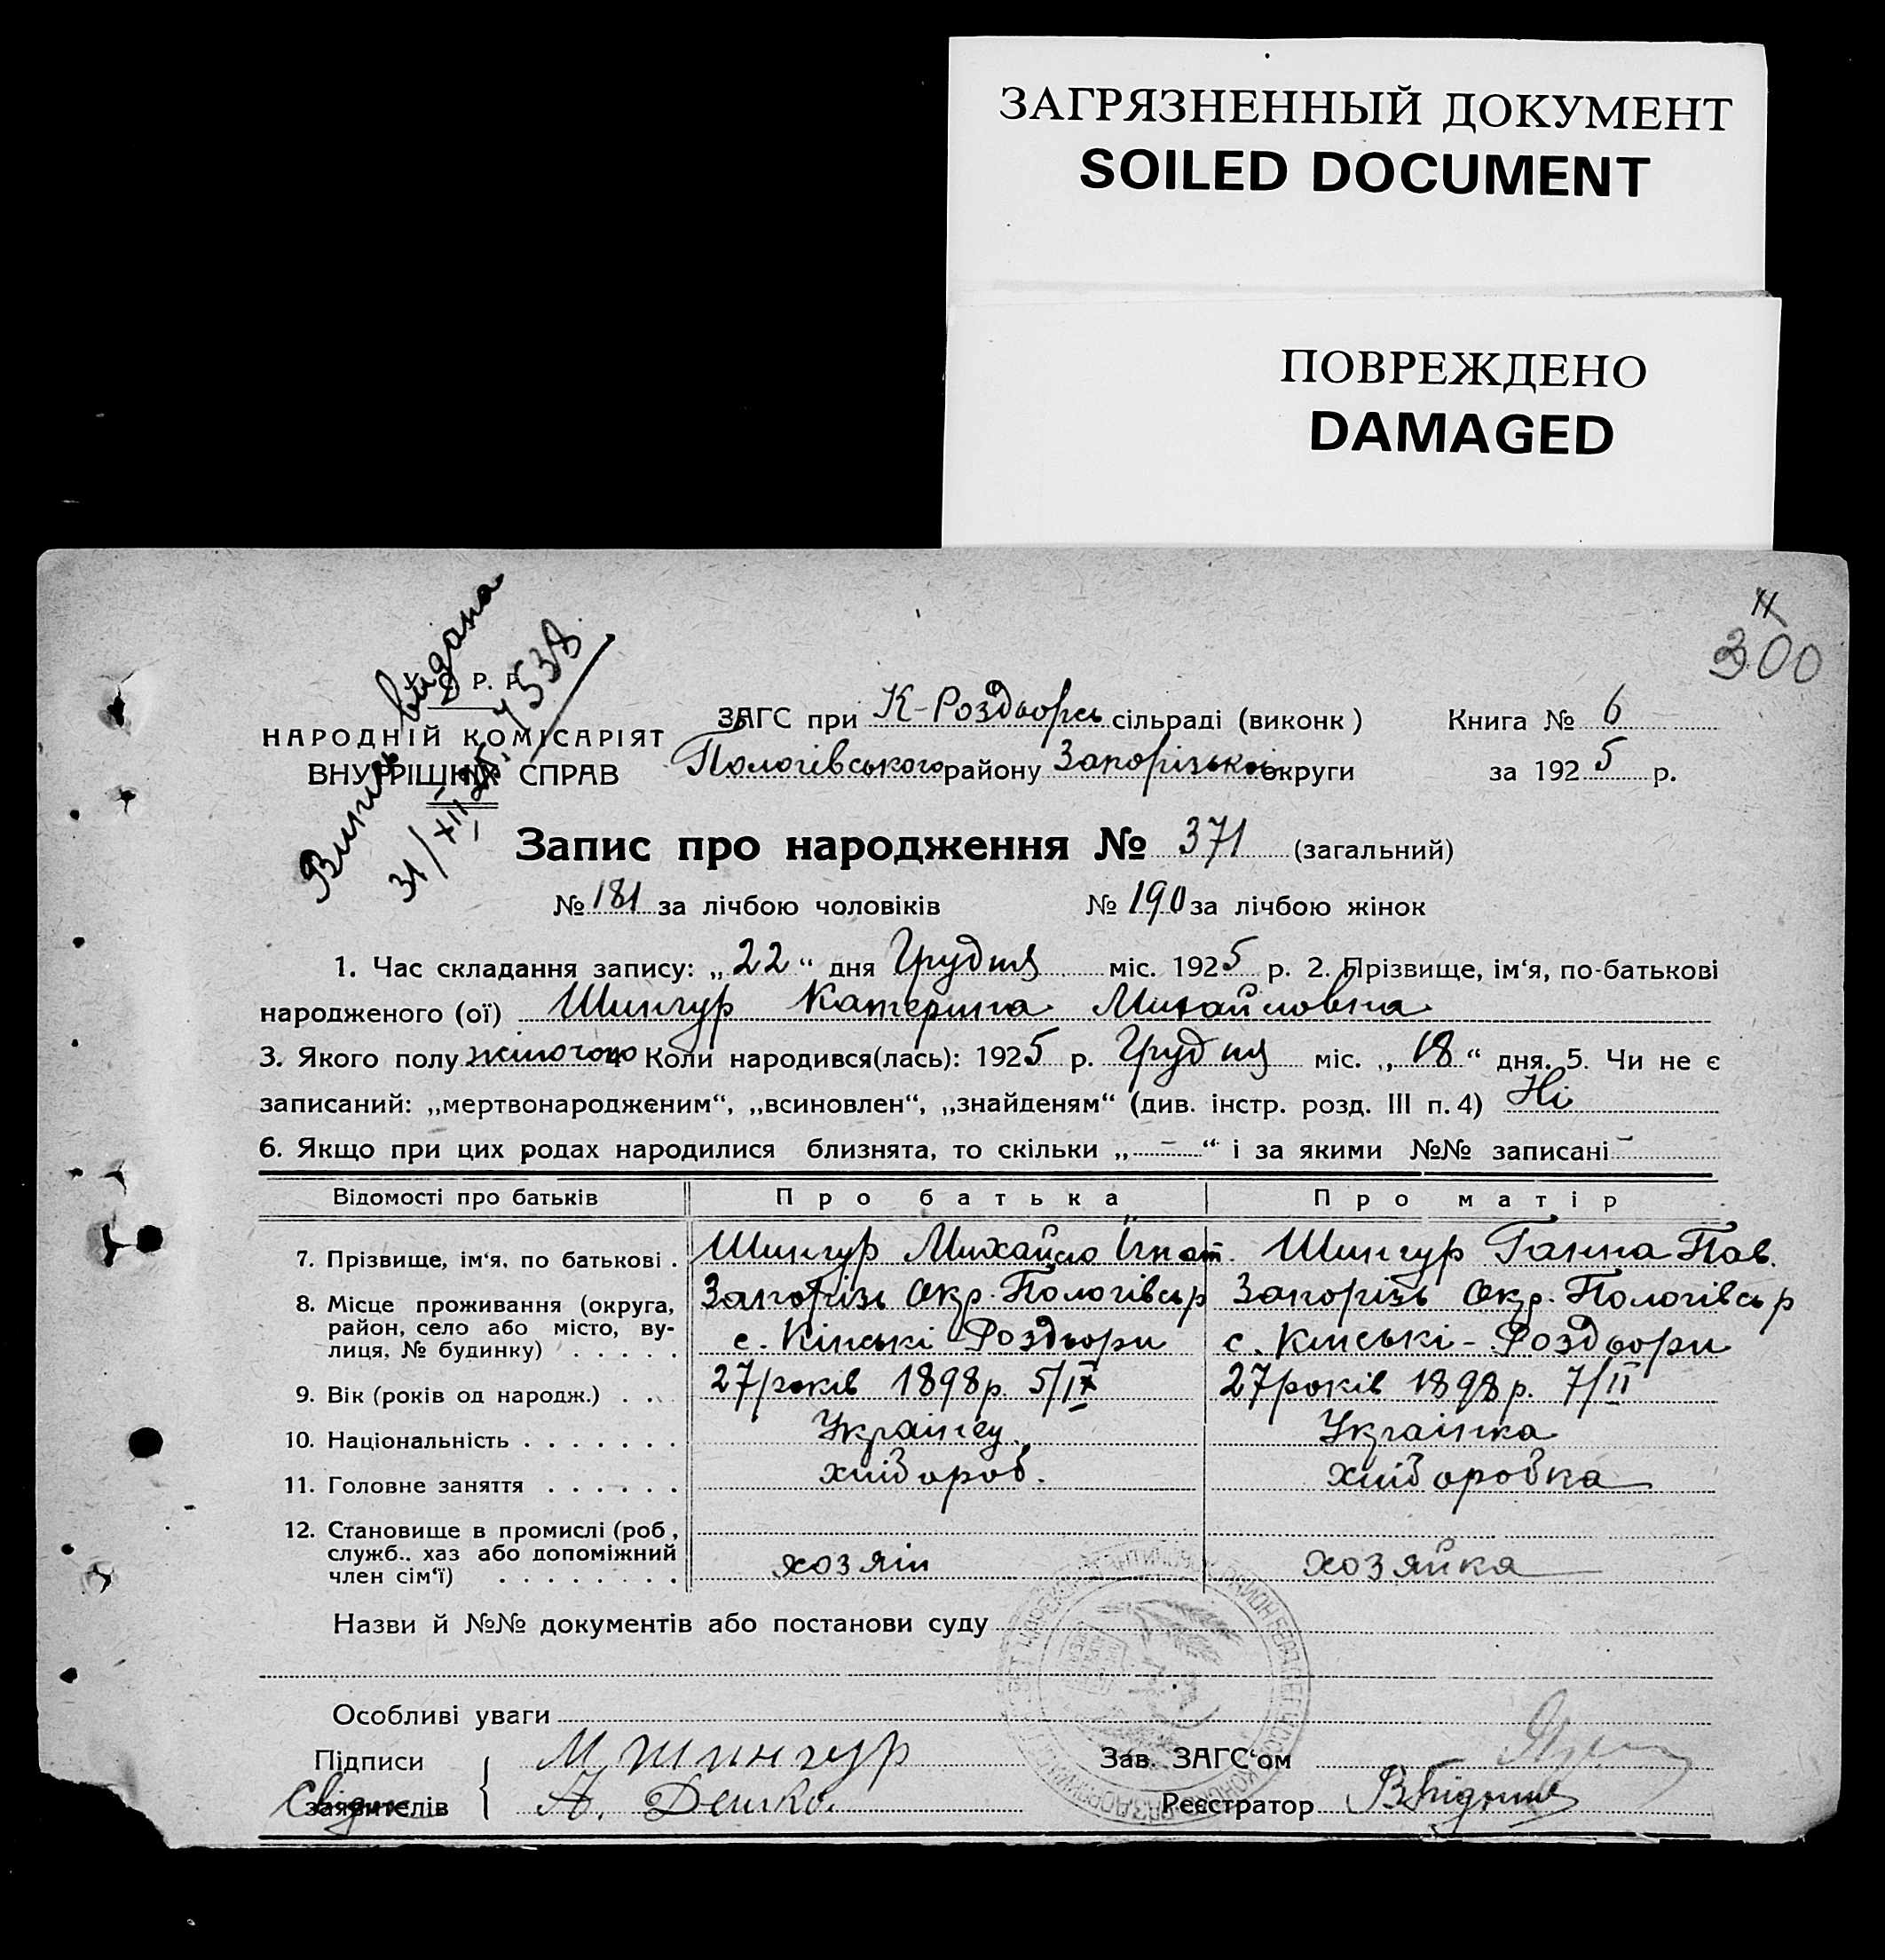 ЗАГРЯЗНЕННЫЙ ДОКУМЕНТ
SOILED DOCUMENT
ПОВРЕЖДЕНО
DAMAGED
11
300
Випис видана
31/XII 25. 1538
У. С. Р. Р.
НАРОДНІЙ КОМІСАРІЯТ
ВНУТРІШНІХ СПРАВ
ЗАГС при К-Роздорсь сільраді (виконк) Книга № 6
Пологівського району Запорізької округи за 1925 р.
Запис про народження № 371 (загальний)
№ 181 за лічбою чоловіків № 190 за лічбою жінок
1. Час складання запису: „22“ дня Грудня міс. 1925 р. 2. Прізвище, ім‘я, по-батькові
народженого (ої) Шингур Катерина Михайловна
3. Якого полу жіночого 4 Коли народився(лась): 1925 р. Грудня міс. „18“ дня. 5. Чи не є
записаний: „мертвонародженим“, „всиновлен“, „знайденям“ (див. інстр. розд. III п. 4) Ні
6. Якщо при цих родах народилися близнята, то скільки „—“ і за якими №№ записані —
Відомості про батьків Про батька Про матір
7. Прізвище, ім‘я, по батькові . Шингур Михайло Ігнат. Шингур Ганна Пав.
8. Місце проживання (округа, Запорізь Окр. Пологівсь р Запорізь Окр. Пологівсь р
район, село або місто, ву-
лиця, № будинку) . . . . . с. Кінські Роздори с. Кінські - Роздори
9. Вік (років од народж.) . . . 27 років 1898 р. 5/IX 27 років 1898 р. 7/II
10. Національність . . . . . . . Українец. Українка
11. Головне заняття . . . . . . хлібороб. хліборобка
12. Становище в промислі (роб,
служб.. хаз або допоміжний
член сім‘ї) . . . . . . . . хозяін хозяйка
Назви й №№ документів або постанови суду
Особливі уваги
Підписи М Шингур Зав. ЗАГС‘ом
заявителів А. Реєстратор